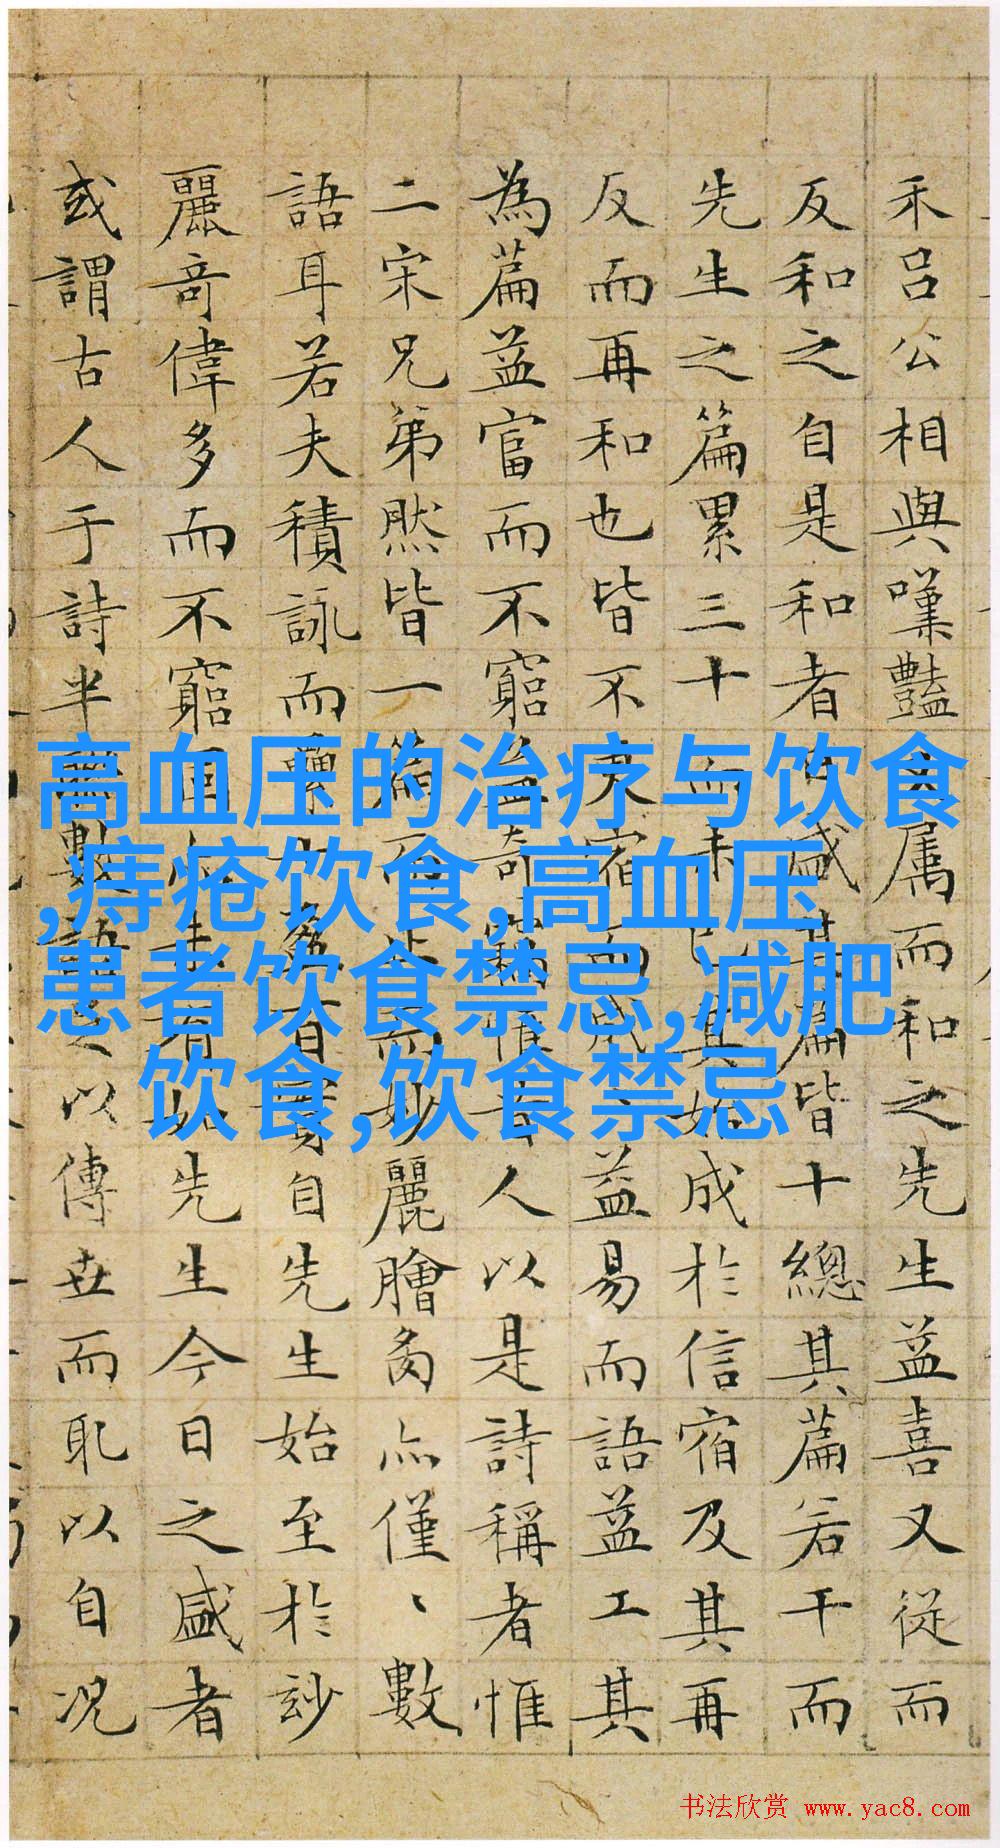 禾吕公相與嘆豔属而和之先生益喜又從而
反和之自是和者盛其篇皆十總其篇若干而
先生之篇累三十而未已其始成於信宿及其再
反而再和也皆不宿而成益易而語益工其
為篇益富而不窮益奇人以是詩稱者惟
二宋兄弟然皆一篇而止而妙麗膾亦僅、數
語耳若夫積詠而百自先生始至於玅
麗奇偉多而不窮有如先生今日之盛者
或謂古人于詩半數語以傳世而耻以自况
高血压的治疗与饮食
,痔疮饮食,高血压
患者饮食禁忌,减肥
饮食,饮食禁忌
书法欣赏 www.yac8.com